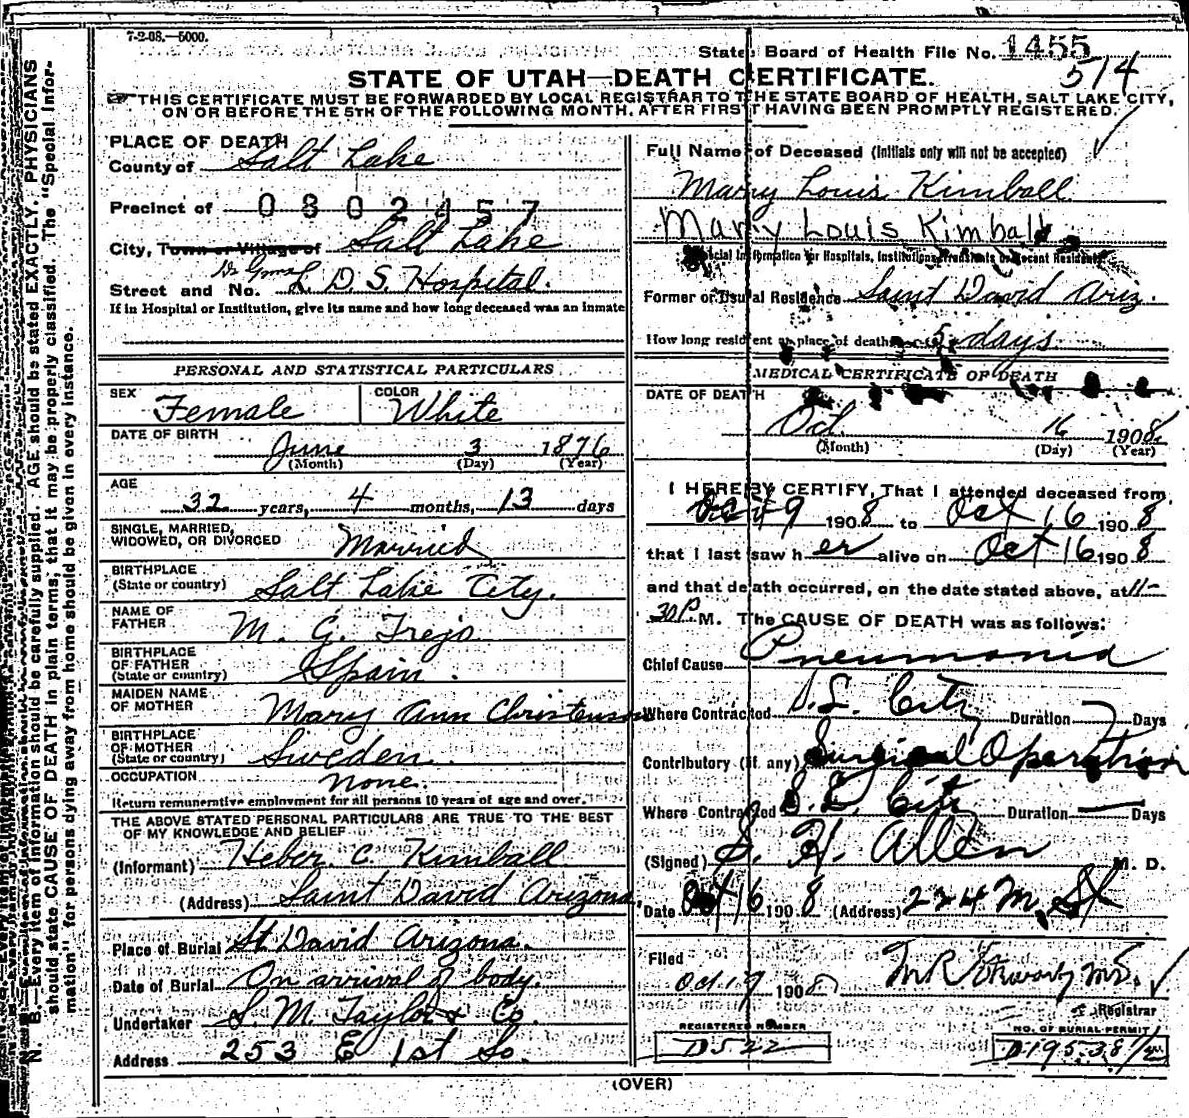 7-2-08.—5000.
State Board of Health File No. 1455
514
STATE OF UTAH—DEATH CERTIFICATE.
THIS CERTIFICATE MUST BE FORWARDED BY LOCAL REGISTRAR TO THE STATE BOARD OF HEALTH, SALT LAKE CITY,
ON OR BEFORE THE 5TH OF THE FOLLOWING MONTH, AFTER FIRST HAVING BEEN PROMPTLY REGISTERED.
N. B.—Every item of information should be carefully supplied. AGE should be stated EXACTLY. PHYSICIANS
should state CAUSE OF DEATH in plain terms, that it may be properly classified. The "Special Infor-
mation" for persons dying away from home should be given in every instance.
PLACE OF DEATH
County of Salt Lake
Precinct of 0802457
City, Town or Village of Salt Lake
Street and No. L. D. S. Hospital.
If in Hospital or Institution, give its name and how long deceased was an inmate
PERSONAL AND STATISTICAL PARTICULARS
SEX Female COLOR White
DATE OF BIRTH
June 3 1876
(Month) (Day) (Year)
AGE
32 years, 4 months, 13 days
SINGLE, MARRIED,
WIDOWED, OR DIVORCED Married
BIRTHPLACE
(State or country) Salt Lake City.
NAME OF
FATHER M. G. Trejo
BIRTHPLACE
OF FATHER
(State or country) Spain.
MAIDEN NAME
OF MOTHER Mary Ann Christenson
BIRTHPLACE
OF MOTHER
(State or country) Sweden.
OCCUPATION None.
Return remunerative employment for all persons 10 years of age and over.
THE ABOVE STATED PERSONAL PARTICULARS ARE TRUE TO THE BEST
OF MY KNOWLEDGE AND BELIEF
(Informant) Heber C. Kimball
(Address) Saint David Arizona.
Place of Burial St David Arizona.
Date of Burial On arrival of body.
Undertaker S. M. Taylor & Co.
Address 253 E 1st So.
Full Name of Deceased (Initials only will not be accepted)
Mary Louis Kimball
Mary Louis Kimball
Special Information for Hospitals, Institutions, Transients or Recent Residents.
Former or Usual Residence Saint David Ariz.
How long resident at place of death 5 days
MEDICAL CERTIFICATE OF DEATH
DATE OF DEATH
Oct. 16 1908
(Month) (Day) (Year)
I HEREBY CERTIFY, That I attended deceased from
Oct 9 1908 to Oct 16 1908
that I last saw her alive on Oct 16 1908
and that death occurred, on the date stated above, at 11-
30 P. M. The CAUSE OF DEATH was as follows:
Chief Cause Pneumonia
Where Contracted S. L. City Duration 7 Days
Contributory (if any) Surgical Operation
Where Contracted S. L. City Duration — Days
(Signed) S. H. Allen M. D.
Date Oct 16 1908 (Address) 234 M. St
Filed
Oct. 19 1908
Registrar
REGISTERED NUMBER
D522
NO. OF BURIAL PERMIT
(OVER)